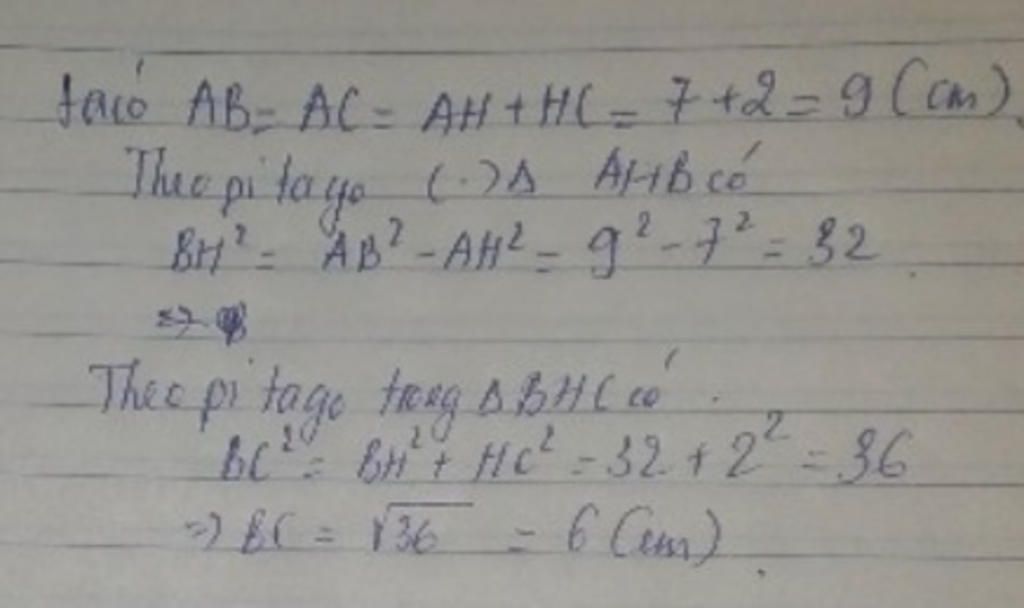 ta có AB = AC = AH + HC = 7 + 2 = 9 (cm)
Theo pi tago (.) Δ AHB có
BH² = AB² - AH² = 9² - 7² = 32
=>
Theo pi tago trong Δ BHC có
BC² = BH² + HC² = 32 + 2² = 36
=> BC = √36 = 6 (cm)